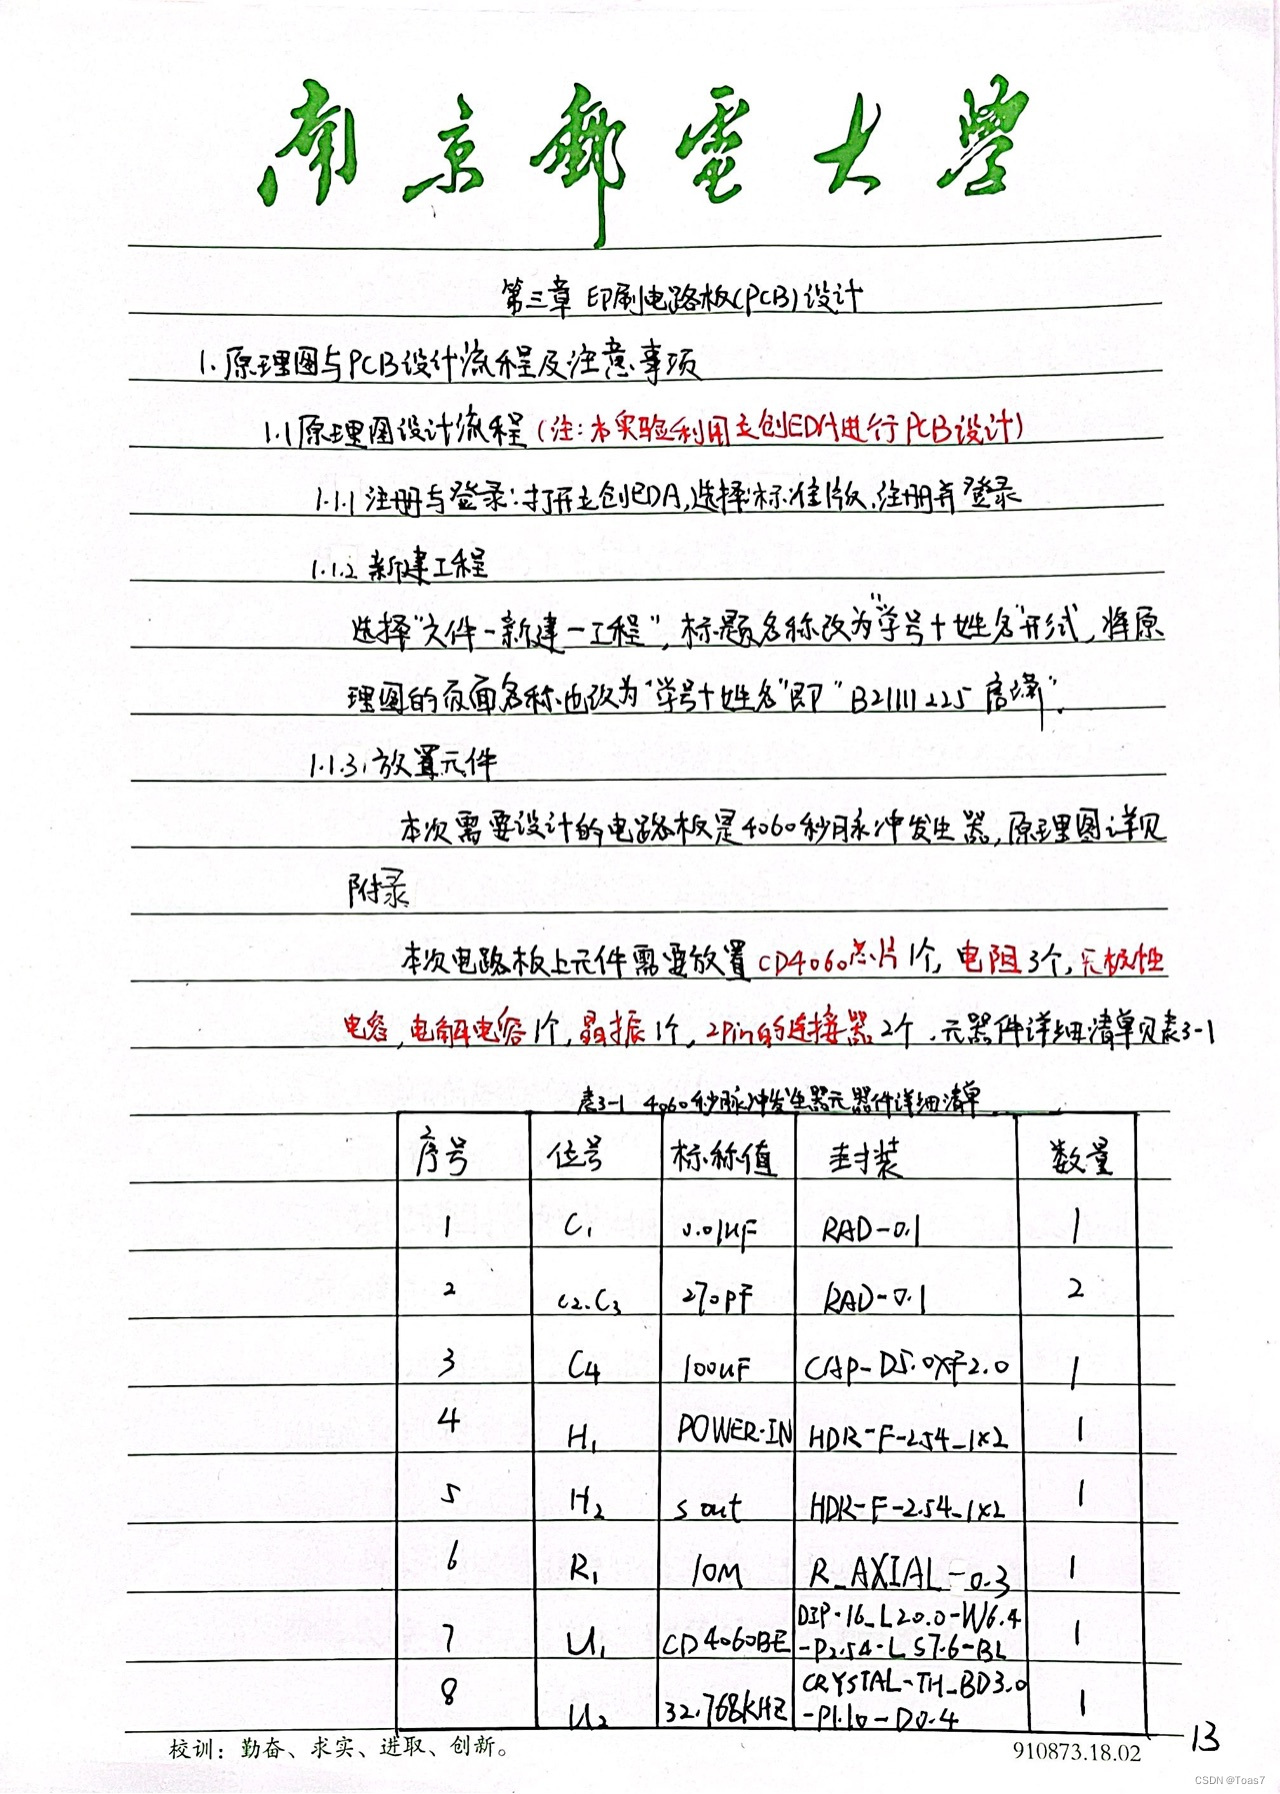 南京郵電大學
第三章 印刷电路板(PCB)设计
1.原理图与PCB设计流程及注意事项
1.1原理图设计流程(注:本实验利用立创EDA进行PCB设计)
1.1.1 注册与登录:打开立创EDA,选择标准版,注册并登录
1.1.2 新建工程
选择"文件-新建-工程",标题名称改为"学号+姓名"形式,将原
理图的页面名称也改为"学号+姓名"即"B21111225
1.1.3.放置元件
本次需要设计的电路板是4060秒脉冲发生器,原理图详见
附录
本次电路板上元件需要放置CD4060芯片1个,电阻3个,无极性
电容,电解电容1个,晶振1个,2Pin的连接器2个.元器件详细清单见表3-1
表3-1 4060秒脉冲发生器元器件详细清单
序号 位号 标称值 封装 数量
1 C1 0.01uF RAD-0.1 1
2 C2.C3 270pF RAD-0.1 2
3 C4 100uF CAP-D5.0XF2.0 1
4 H1 POWER-IN HDR-F-2.54_1x2 1
5 H2 s out HDR-F-2.54_1x2 1
6 R1 10M R_AXIAL-0.3 1
7 U1 CD4060BE DIP-16_L20.0-W6.4
-P2.54-LS7.6-BL 1
8 U2 32.768kHZ CRYSTAL-TH_BD3.0
-P1.10-D0.4 1
校训：勤奋、求实、进取、创新。 910873.18.02 13
CSDN @Toas7